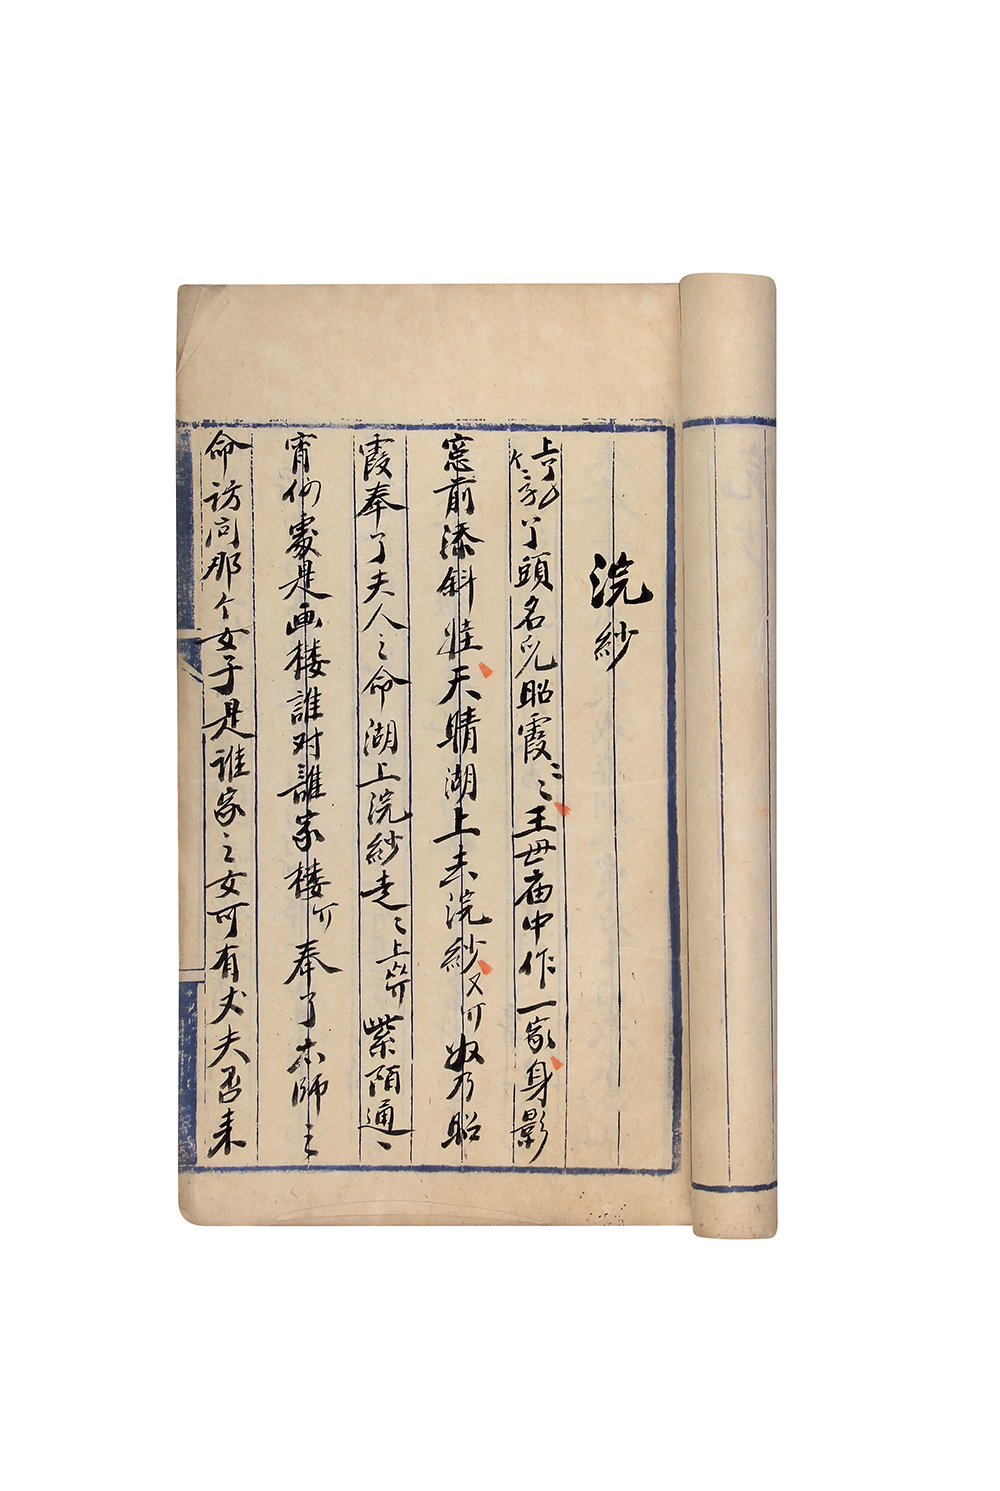 浣紗
丫頭名兒昭霞〻〻王母庙中作一家身影
窓前添斜粧天晴湖上去浣紗又介奴乃昭
霞奉了夫人之命湖上浣紗走〻上介紫陌通〻
宵何處是画楼誰对誰家楼介奉了本師之
命访问那个女子是谁家之女可有丈夫否来